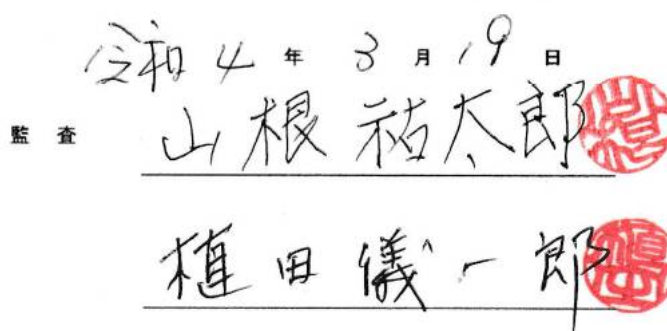 令和4年3月19日
監査 山根祐太郎
植田儀一郎